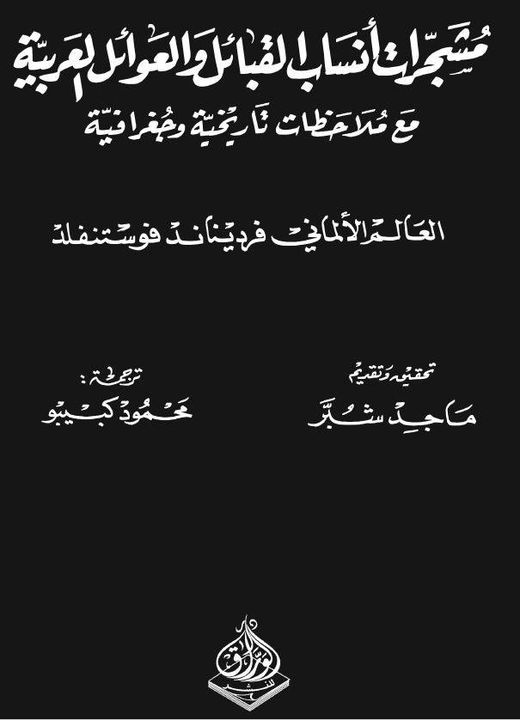 مُشجّرات أنساب القبائل والعوائل العربيّة
مَع مُلاحَظات تَاريْخيّة وجُغرافيّة
العَالم الألماني فرديْناند فوستنفلد
تحقيق وَتقديْم
مَاجِدْ شُبَّر
ترجمَة:
مَحمُود كبيبو
الورّاق
للنشر